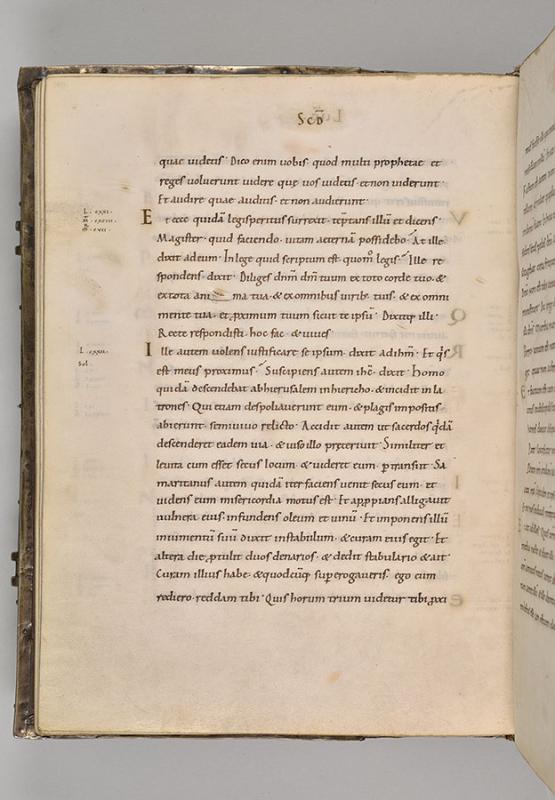 Scd̄
quae uidetis. Dico enim uobis. quod multi prophetae et
reges uoluerunt uidere quę uos uidetis. et non uiderunt.
Et audire quae auditis. et non audierunt.
Et ecce quidā legisperitus surrexit. tēptans illū et dicens.
Magister. quid faciendo. uitam aeternā possidebo. At ille
dixit ad eum. In lege quid scriptum est. quom̊ legis. Ille re
spondens. dixit. Diliges dnm̄ dm̄ tuum ex toto corde tuo. &
ex tota ani ma tua. & ex omnibus uirib; tuis. & ex omni
mente tua. et ꝓximum tuum sicut te ipsū. Dixitq; illi.
Recte respondisti. hoc fac. & uiues.
Ille autem uolens iustificare se ipsum. dixit ad ihm̄. Et q̇s
est meus proximus. Suscipiens autem ihc̄. dixit. Homo
quidā descendebat ab hierusalem in hiericho. & incidit in la
trones. Qui etiam despoliauerunt eum. & plagis impositis.
abierunt. semiuiuo relicto. Accidit autem ut sacerdos q̇dā
descenderet eadem uia. & uiso illo preteriuit. Similiter et
leuita cum esset secus locum. & uideret eum. ꝑtransiit. Sa
maritanus autem quidā iter faciens uenit secus eum. et
uidens eum misericordia motus est. Et apꝓpians alligauit
uulnera eius. infundens oleum et uinū. Et imponens illū
in iumentū suū duxit in stabulum. & curam eius egit. Et
altera die ꝓtulit duos denarios. & dedit stabulario & ait.
Curam illius habe. & quodcūq; supererogaueris. ego cum
rediero. reddam tibi. Quis horum trium uidetur tibi ꝓxi